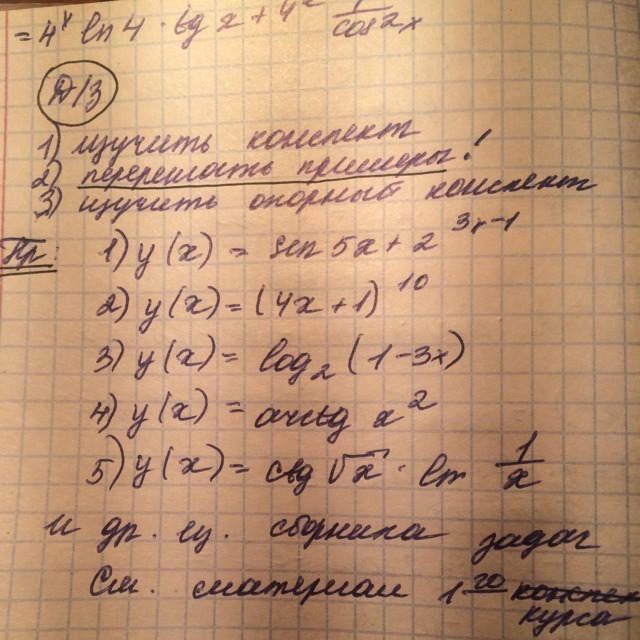 = 4ˣ ln 4 · tg x + 4ˣ 1/cos²x
Д/З
1) изучить конспект
2) перерешать примеры!
3) изучить опорный конспект
Пр: 1) y(x) = sin 5x + 2^(3x-1)
2) y(x) = (4x+1)^10
3) y(x) = log₂(1-3x)
4) y(x) = arctg x²
5) y(x) = ctg √x · ln 1/x
и др. сборника задач
См. материал 1го
курса